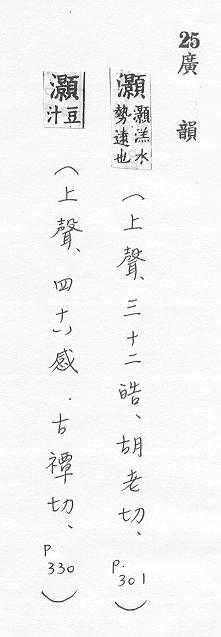 25廣韻
灝灝溔水勢遠也（上聲、三十二皓、胡老切、p.301）
灝豆汁（上聲、四十八感．古禫切、P330）